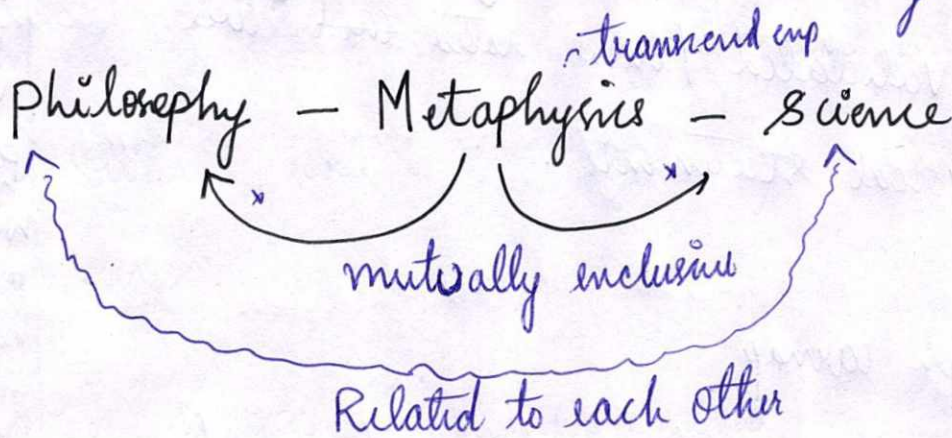 transcend exp
Philosophy – Metaphysics – Science
x x
mutually exclusive
Related to each other